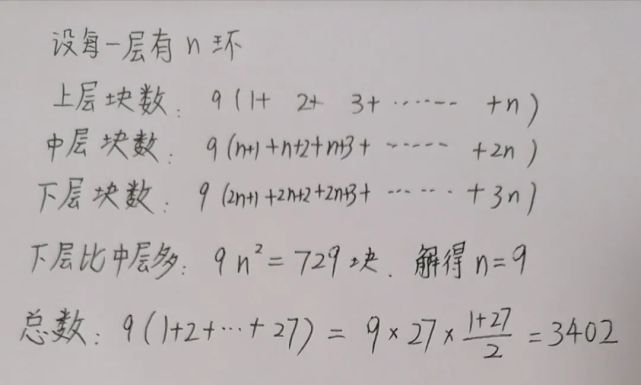 设每一层有 n 环
上层块数: 9 (1+ 2+ 3+ ······ +n)
中层块数: 9 (n+1+n+2+n+3+ ······ +2n)
下层块数: 9 (2n+1+2n+2+2n+3+ ······ +3n)
下层比中层多: 9n² = 729块. 解得 n=9
总数: 9 (1+2+···+27) = 9×27×\frac{1+27}{2} = 3402